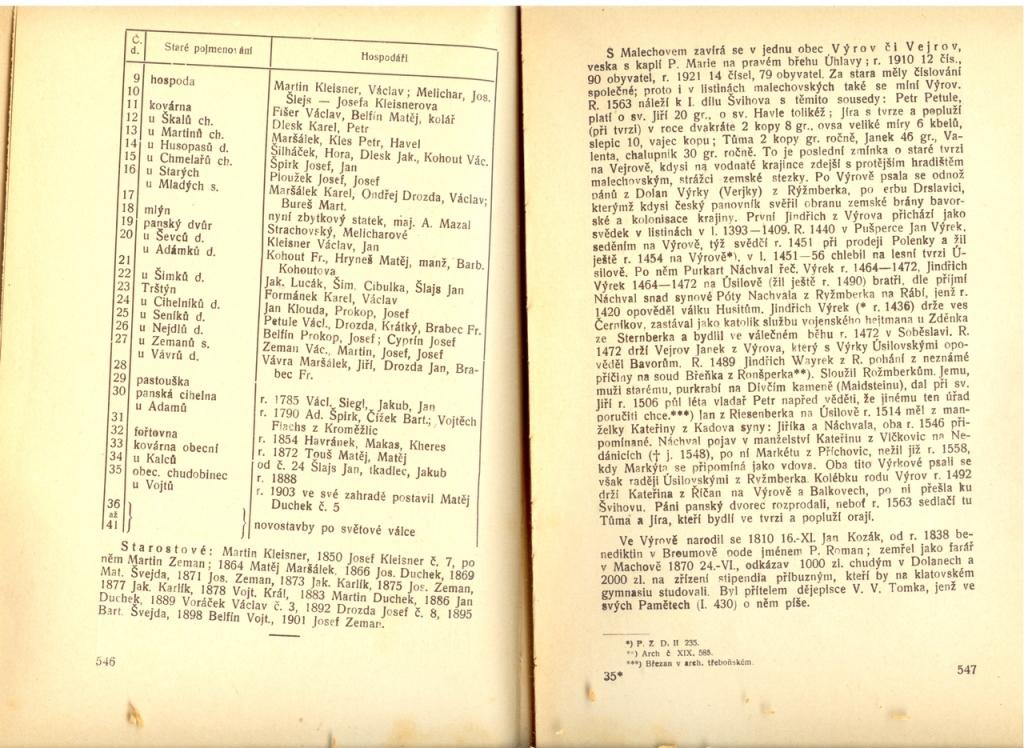 Č. d. Staré pojmenování Hospodáři
9 hospoda Martin Kleisner, Václav; Melichar, Jos.
10 Šlejs — Josefa Kleisnerova
11 kovárna Fišer Václav, Belfín Matěj, kolář
12 u Škalů ch. Dlesk Karel, Petr
13 u Martinů ch. Maršálek, Kles Petr, Havel
14 u Husopasů d. Šilháček, Hora, Dlesk Jak., Kohout Vác.
15 u Chmelařů ch. Špirk Josef, Jan
16 u Starých Ploužek Josef, Josef
u Mladých s. Maršálek Karel, Ondřej Drozda, Václav;
17 Bureš Mart.
18 mlýn nyní zbytkový statek, maj. A. Mazal
19 panský dvůr Strachovský, Melicharové
20 u Ševců d. Kleisner Václav, Jan
u Adámků d. Kohout Fr., Hryneš Matěj, manž, Barb.
21 Kohoutova
22 u Šimků d. Jak. Lucák, Šim. Cibulka, Šlajs Jan
23 Trštýn Formánek Karel, Václav
24 u Cihelníků d. Jan Klouda, Prokop, Josef
25 u Seníků d. Petule Václ., Drozda, Krátký, Brabec Fr.
26 u Nejdlů d. Belfín Prokop, Josef; Cyprín Josef
27 u Zemanů s. Zeman Vác., Martin, Josef, Josef
u Vávrů d. Vávra Maršálek, Jiří, Drozda Jan, Bra-
28 bec Fr.
29 pastouška
30 panská cihelna r. 1785 Václ. Siegl, Jakub, Jan
u Adamů r. 1790 Ad. Špirk, Čížek Bart.; Vojtěch
31 Fiachs z Kroměžlic
32 fořtovna r. 1854 Havránek, Makas, Kheres
33 kovárna obecní r. 1872 Touš Matěj, Matěj
34 u Kalců od č. 24 Šlajs Jan, tkadlec, Jakub
35 obec. chudobinec r. 1888
u Vojtů r. 1903 ve své zahradě postavil Matěj
Duchek č. 5
36
až } } novostavby po světové válce
41
Starostové: Martin Kleisner, 1850 Josef Kleisner č. 7, po
něm Martin Zeman; 1864 Matěj Maršálek, 1866 Jos. Duchek, 1869
Mat. Švejda, 1871 Jos. Zeman, 1873 Jak. Karlík, 1875 Jos. Zeman,
1877 Jak. Karlík, 1878 Vojt. Král, 1883 Martin Duchek, 1886 Jan
Duchek, 1889 Voráček Václav č. 3, 1892 Drozda Josef č. 8, 1895
Bart. Švejda, 1898 Belfín Vojt., 1901 Josef Zeman.
546
S Malechovem zavírá se v jednu obec Výrov či Vejrov,
veska s kaplí P. Marie na pravém břehu Úhlavy; r. 1910 12 čís.,
90 obyvatel, r. 1921 14 čísel, 79 obyvatel. Za stara měly číslování
společné; proto i v listinách malechovských také se míní Výrov.
R. 1563 náleží k I. dílu Švihova s těmito sousedy: Petr Petule,
platí o sv. Jiří 20 gr., o sv. Havle tolikéž; Jíra s tvrze a popluží
(při tvrzi) v roce dvakráte 2 kopy 8 gr., ovsa veliké míry 6 kbelů,
slepic 10, vajec kopu; Tůma 2 kopy gr. ročně, Janek 46 gr., Va-
lenta, chalupník 30 gr. ročně. To je poslední zmínka o staré tvrzi
na Vejrově, kdysi na vodnaté krajince zdejší s protějším hradištěm
malechovským, strážci zemské stezky. Po Výrově psala se odnož
pánů z Dolan Výrky (Verjky) z Rýžmberka, po erbu Drslavici,
kterýmž kdysi český panovník svěřil obranu zemské brány bavor-
ské a kolonisace krajiny. První Jindřich z Výrova přichází jako
svědek v listinách v l. 1393—1409. R. 1440 v Pušperce Jan Výrek,
seděním na Výrově, týž svědčí r. 1451 při prodeji Polenky a žil
ještě r. 1454 na Výrově*), v l. 1451—56 chlebil na lesní tvrzi Ú-
silově. Po něm Purkart Náchval řeč. Výrek r. 1464—1472, Jindřich
Výrek 1464—1472 na Úsilově (žil ještě r. 1490) bratři, dle příjmí
Náchval snad synové Póty Nachvala z Ryžmberka na Rábí, jenž r.
1420 opověděl válku Husitům. Jindřich Výrek (* r. 1436) drže ves
Černíkov, zastával jako katolík službu vojenského hejtmana u Zdeňka
ze Sternberka a bydlil ve válečném běhu r. 1472 v Soběslavi. R.
1472 drží Vejrov Janek z Výrova, který s Výrky Úsilovskými opo-
věděl Bavorům. R. 1489 Jindřich Wayrek z R. pohání z neznámé
příčiny na soud Břeňka z Ronšperka**). Sloužil Rožmberkům. Jemu,
muži starému, purkrabí na Dívčím kameně (Maidsteinu), dal při sv.
Jiří r. 1506 půl léta vladař Petr napřed věděti, že jinému ten úřad
poručiti chce.***) Jan z Riesenberka na Úsilově r. 1514 měl z man-
želky Kateřiny z Kadova syny: Jiříka a Náchvala, oba r. 1546 při-
pomínané. Náchval pojav v manželství Kateřinu z Vlčkovic na Ne-
dánicích († j. 1548), po ní Markétu z Příchovic, nežil již r. 1558,
kdy Markýta se připomíná jako vdova. Oba tito Výrkové psali se
však raději Úsilovskými z Ryžmberka. Kolébku rodu Výrov r. 1492
drží Kateřina z Říčan na Výrově a Balkovech, po ní přešla ku
Švihovu. Páni panský dvorec rozprodali, neboť r. 1563 sedlačí tu
Tůma a Jíra, kteří bydlí ve tvrzi a popluží orají.
Ve Výrově narodil se 1810 16.-XI. Jan Kozák, od r. 1838 be-
nediktin v Broumově pode jménem P. Roman; zemřel jako farář
v Machově 1870 24.-VI., odkázav 1000 zl. chudým v Dolanech a
2000 zl. na zřízení stipendia příbuzným, kteří by na klatovském
gymnasiu studovali. Byl přítelem dějepisce V. V. Tomka, jenž ve
svých Pamětech (I. 430) o něm píše.
*) P. Z D. II 235.
**) Arch č XIX. 585.
***) Březan v arch. třeboňském.
35*
547